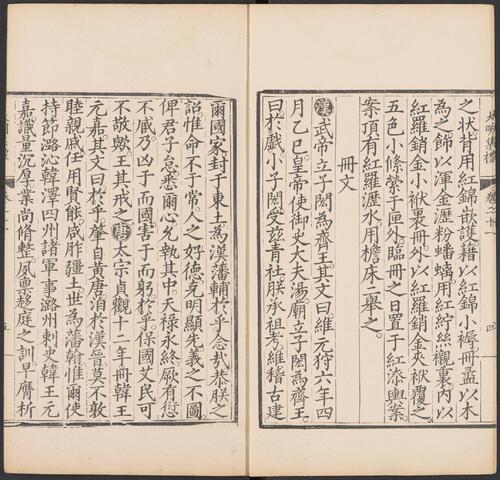 之状背用紅錦嵌護藉以紅錦小褥冊盝以木
為之飾以渾金瀝粉蟠螭用紅紵絲襯裏內以
紅羅銷金小袱裹冊外以紅羅銷金夾袱覆之
五色小絛縈于匣外臨冊之日置于紅漆輿案
案頂有紅羅瀝水用擔床二舉之
冊文
漢武帝立子閎為齊王其文曰維元狩六年四
月乙巳皇帝使御史大夫湯廟立子閎為齊王
曰於戲小子閎受茲青社朕承祖考維稽古建
爾國家封于東土為漢藩輔於乎念哉恭朕之
詔惟命不于常人之好德克明顯先義之不圖
俾君子怠悉爾心允執其中天祿永終厥有愆
不臧乃凶于而國害于而躬於乎保國艾民可
不敬歟王其戒之唐太宗貞觀十二年冊韓王
元嘉其文曰於乎肇自黃唐洎於漢晉莫不敦
睦親戚任用賢能咸胙疆土世為藩翰惟爾使
持節潞沁韓澤四州諸軍事潞州刺史韓王元
嘉識量沉厚業尚脩整夙稟趨庭之訓早膺析